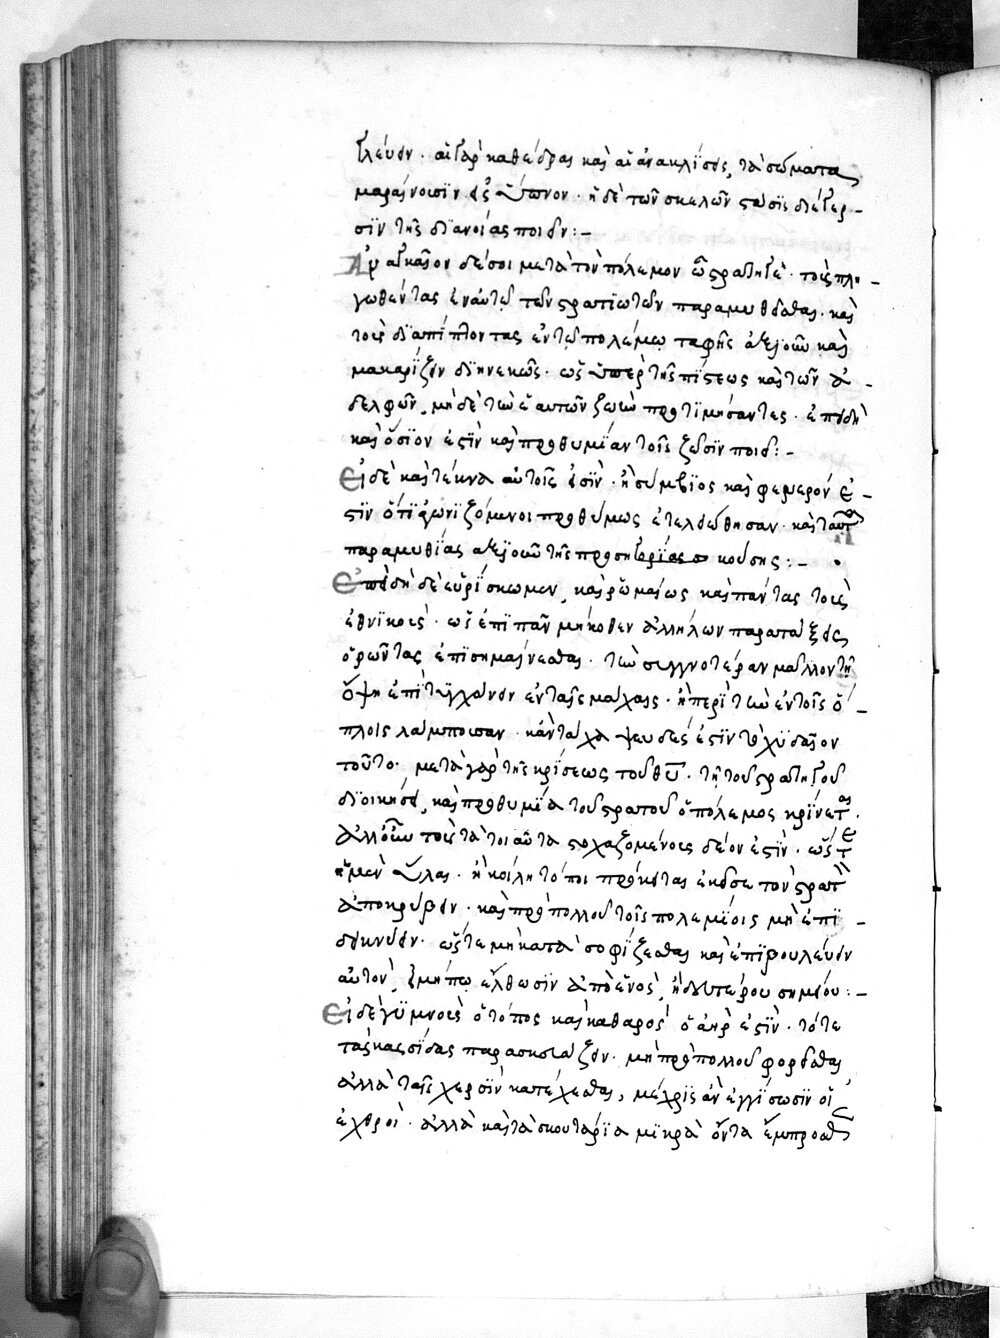 γλεύειν· αἱ γὰρ καθέδραι καὶ αἱ ἀνακλίσεις, τὰ σώματα
μαραίνουσιν εἰς ὕπνον· ἡ δὲ τῶν σκελῶν στάσις διέγερ-
σιν τῆς διανοίας ποιεῖ:-
Ἀναγκαῖον δέ σοι μετὰ τὸν πόλεμον ὦ στρατηγέ· τοὺς πλη-
γωθέντας ἐν αὐτῷ τῶν στρατιωτῶν παραμυθεῖσθαι· καὶ
τοὺς διαπίπτοντας ἐν τῷ πολέμῳ ταφῆς ἀξιοῦν καὶ
μακαρίζειν διηνεκῶς· ὡς ὑπὲρ τῆς πίστεως καὶ τῶν ἀ-
δελφῶν, μὴ δὲ τὴν ἑαυτῶν ζωὴν προτιμήσαντες· ἐπειδὴ
καὶ ὅσιον ἐστὶν καὶ προθυμίαν τοῖς ζῶσιν ποιεῖ:-
Εἰ δὲ καὶ τέκνα αὐτοῖς ἐστὶν· ἢ σύμβιος καὶ φανερόν ἐ-
στιν ὅτι ἀγωνιζόμενοι προθύμως ἐτελειώθησαν· καὶ ταῦτα
παραμυθίας ἀξιοῦν τῆς προσηκούσης:-
Ἐπειδὴ δὲ εὑρίσκομεν, καὶ ῥωμαίως καὶ πάντας τοὺς
ἐθνικοὺς· ὡς ἐπίπαν μήκοθεν ἀλλήλων παρατάξεις
ὁρῶντας ἐπισημαίνεσθαι· τὴν συγνοτέραν μᾶλλον τῇ
ὄψῃ ἐπιτυγχάνειν ἐν ταῖς μάχαις· ἤπερ τὴν ἐν τοῖς ὅ-
πλοις λάμπουσαν· κἂν τάχα ψευδές ἐστιν τὸ χυδαῖον
τοῦτο· μετὰ γὰρ τῆς κρίσεως τοῦ θυ· τῇ τοῦ στρατηγοῦ
διοικήσει, καὶ προθυμία τοῦ στρατοῦ ὁ πόλεμος κρίνεται·
ἀλλ' οὖν τοὺς τὰ τοιαῦτα στοχαζομένους δέον ἐστὶν· ὥστε
εἰ μὲν ὗλαι· ἢ κοῖλη τόποι πρόκεινται ἐκεῖσε τὸν στρατὸν
ἀποκρύβειν· καὶ πρὸ πολλοῦ τοῖς πολεμίοις μὴ ἐπι-
δεικνύειν· ὥστε μὴ κατασοφίζεσθαι καὶ ἐπιβουλεύειν
αὐτὸν, εἰ μήπω ἔλθωσιν ἀπὸ ἑνὸς, ἢ δευτέρου σημείου:-
Εἰ δὲ γυμνοὺς ὁ τόπος καὶ καθαρὸς ὁ ἀήρ ἐστὶν· τότε
τὰς κασσίδας παρασκευάζειν· μὴ πρὸ πολλοῦ φορεῖσθαι
ἀλλὰ ταῖς χερσὶν κατέχεσθαι, μέχρις ἂν ἐγγίσωσιν οἱ
ἐχθροὶ· ἀλλὰ καὶ τὰ σκουτάρια μικρὰ ὄντα ἔμπροσθεν